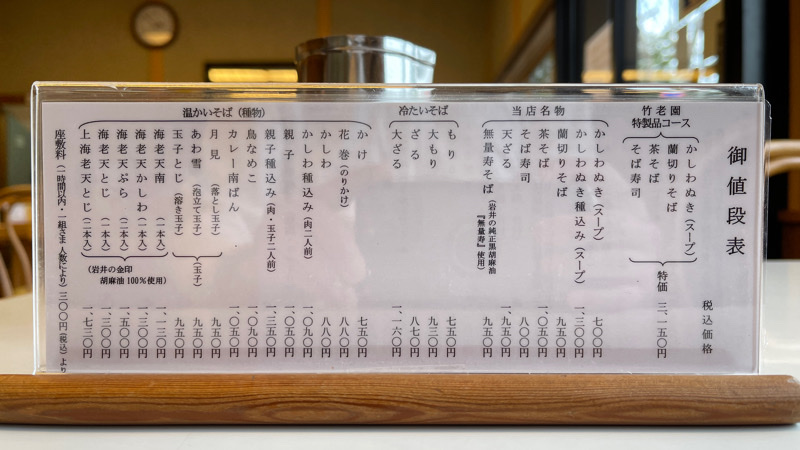 御値段表
税込価格
竹老園
特製品コース
かしわぬき（スープ）
蘭切りそば
茶そば
そば寿司
特価 三、一五〇円
当店名物
かしわぬき（スープ） 七〇〇円
かしわぬき種込み（スープ） 一、三〇〇円
蘭切りそば 九五〇円
茶そば 一、〇五〇円
そば寿司 八〇〇円
天ざる
無量寿そば（岩井の純正黒胡麻油『無量寿』使用） 九五〇円
冷たいそば
もり 七五〇円
大もり 九三〇円
ざる 八七〇円
大ざる 一、一六〇円
温かいそば（種物）
かけ 七五〇円
花巻（のりかけ） 八八〇円
かしわ 八八〇円
かしわ種込み（肉二人前） 一、〇九〇円
親子 一、〇五〇円
親子種込み（肉・玉子二人前） 一、三五〇円
鳥なめこ 九五〇円
カレー南ばん 一、〇五〇円
月見（落とし玉子） 九五〇円
あわ雪（泡立て玉子） 九五〇円
玉子とじ（溶き玉子） 九五〇円
（玉子）
海老天南（一本入） 一、一三〇円
海老天かしわ（一本入） 一、三〇〇円
海老天ぷら（二本入） 一、五〇〇円
海老天とじ（一本入） 一、三〇〇円
上海老天とじ（二本入） 一、七三〇円
（岩井の金印
胡麻油100％使用）
座敷料（一時間以内・一組さま人数により）三〇〇円（税込）より